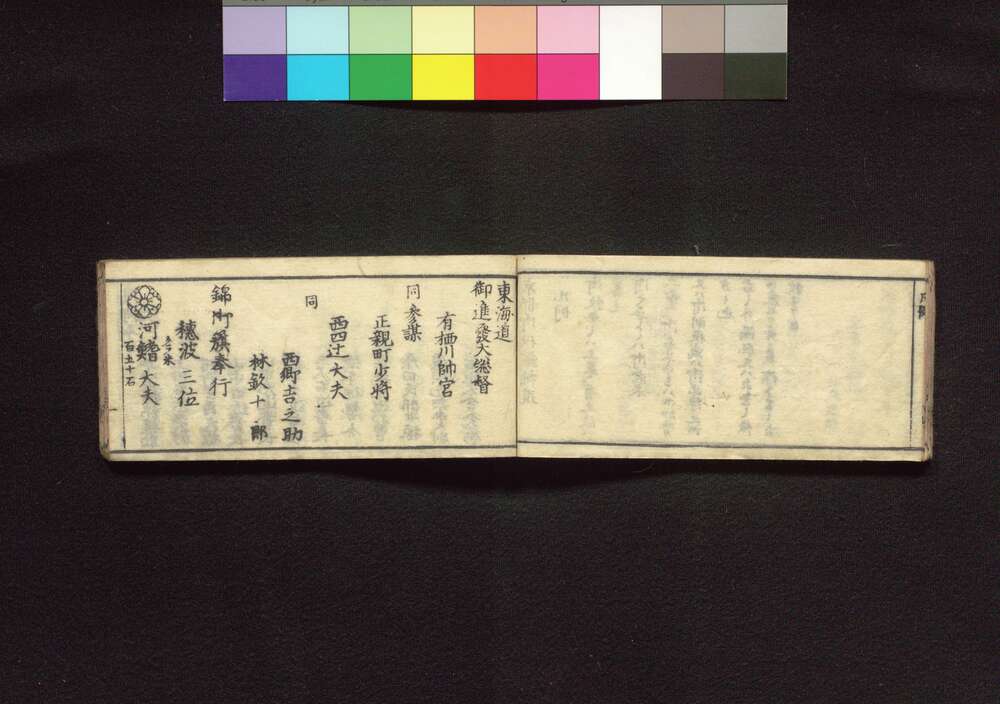 東海道
御進發大総督
有栖川帥宮
同参謀
正親町少将
西四辻大夫
同
西郷吉之助
林玖十郎
錦御籏奉行
穂波三位
河鰭大夫
百五十石